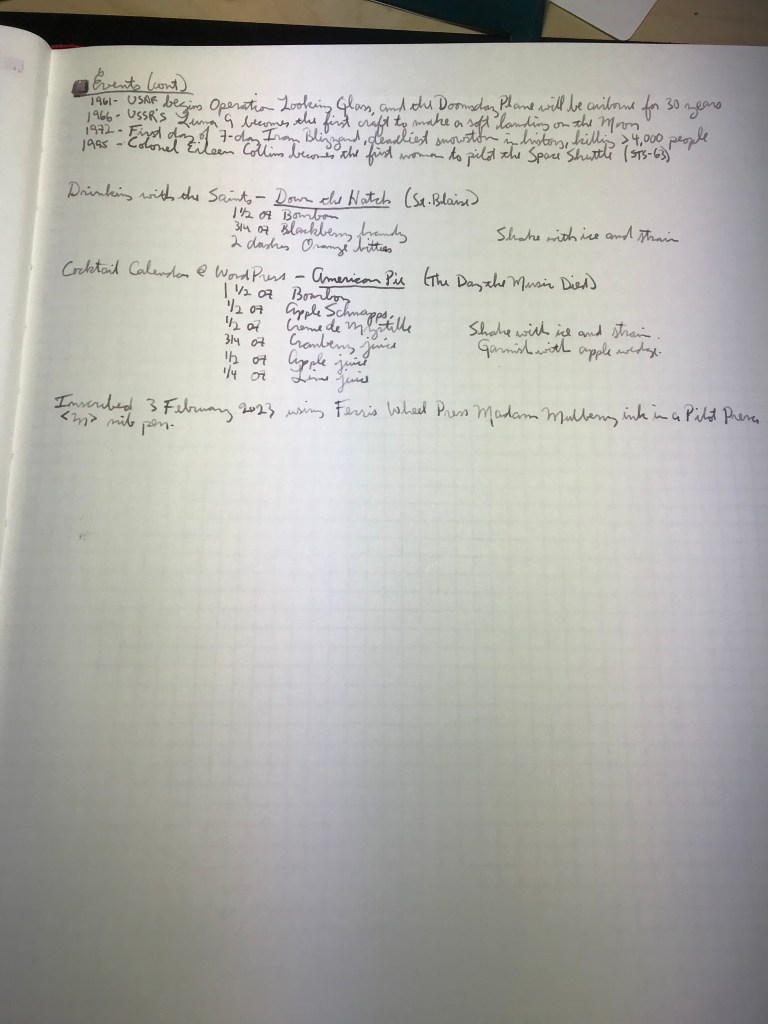 Events (cont)
1961 - USAF begins Operation Looking Glass, and the Doomsday Plane will be airborne for 30 years
1966 - USSR's Luna 9 becomes the first craft to make a soft landing on the Moon
1972 - First day of 7-day Iran Blizzard, deadliest snowstorm in history, killing >4,000 people
1995 - Colonel Eileen Collins becomes the first woman to pilot the Space Shuttle (STS-63)
Drinking with the Saints - Down the Hatch (St. Blaise)
1 1/2 oz Bourbon
3/4 oz Blackberry brandy Shake with ice and strain
2 dashes Orange bitters
Cocktail Calendar @ WordPress - American Pie (The Day the Music Died)
1 1/2 oz Bourbon
1/2 oz Apple Schnapps
1/2 oz Creme de Myrtille Shake with ice and strain.
3/4 oz Cranberry juice Garnish with apple wedge.
1/2 oz Apple juice
1/4 oz Lime juice
Inscribed 3 February 2023 using Ferris Wheel Press Madam Mulberry ink in a Pilot Prera
<m> nib pen.